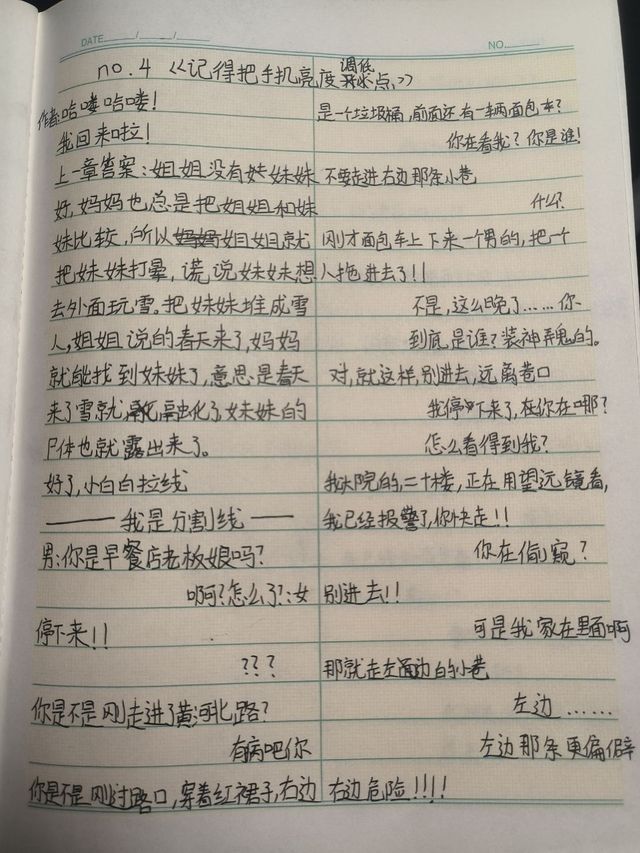 DATE / /
NO.
no.4 《记得把手机亮度调低点,》
作者:哈喽哈喽!
我回来啦!
上一章答案:姐姐没有妹妹
好,妈妈也总是把姐姐和妹
妹比较,所以姐姐就
把妹妹打晕,谎说妹妹想
去外面玩雪。把妹妹堆成雪
人,姐姐说的春天来了,妈妈
就能找到妹妹了,意思是春天
来了雪就融化了,妹妹的
尸体也就露出来了。
好了,小白白拉线
——我是分割线——
男:你是早餐店老板娘吗?
啊?怎么了?:女
停下来!!
???
你是不是刚走进了黄河北路?
有病吧你
你是不是刚过路口,穿着红裙子,右边
是一个垃圾桶,前面还有一辆面包车?
你在看我?你是谁!
不要走进右边那条小巷
什么?
刚才面包车上下来一个男的,把一
人拖进去了!!
不是,这么晚了……你
到底是谁?装神弄鬼的。
对,就这样,别进去,远离巷口
我停下来了,在你在哪?
怎么看得到我?
我大院的,二十楼,正在用望远镜看,
我已经报警了,你快走!!
你在偷窥?
别进去!!
可是我家在里面啊
那就走左边的小巷
左边……
左边那条更偏僻
右边危险!!!!